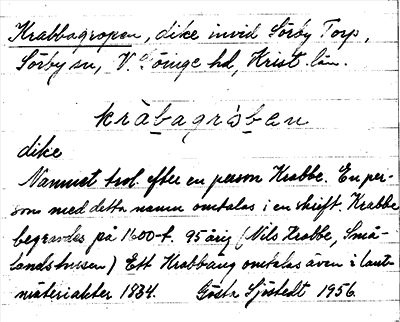 Krabbagropen, dike invid Sörby Torp,
Sörby sn, V. Göinge hd, Krist. län.
kràbagròban
dike
Namnet trol. efter en person Krabbe. En per-
son med detta namn omtalas i en skrift. Krabbe
begravdes på 1600-t. 95 årig (Nils Krabbe, Små-
landsbussen) Ett Krabbäng omtalas även i lant-
mäteriakter 1834. Gösta Sjöstedt 1956.